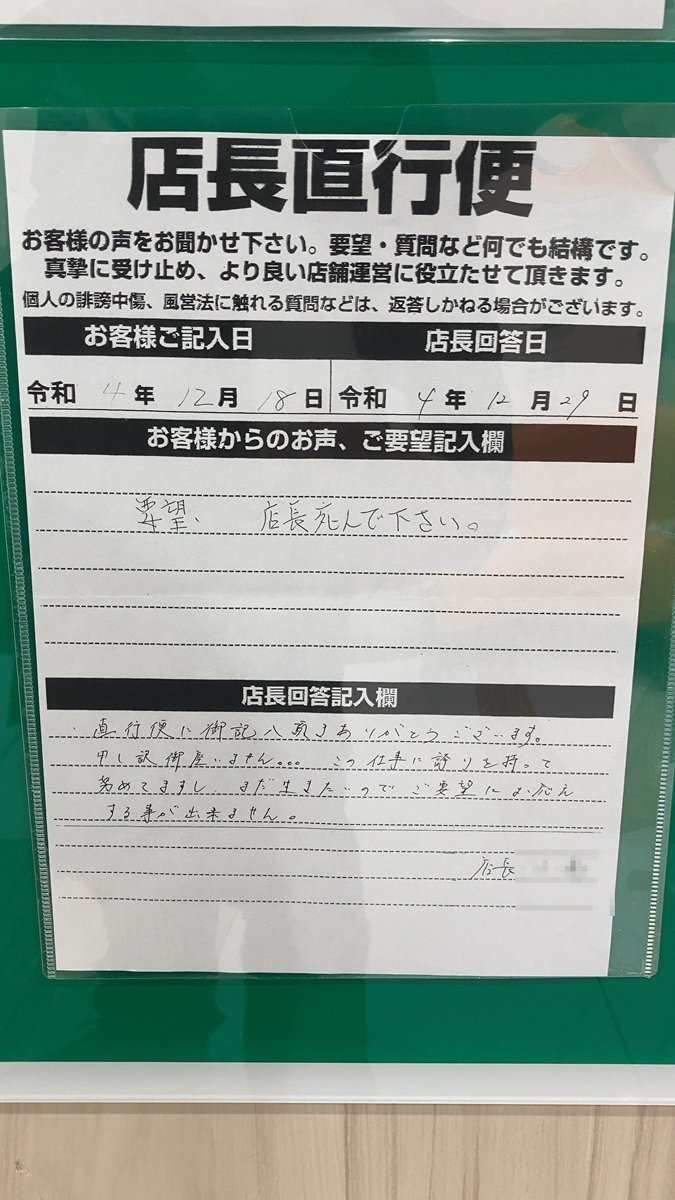 店長直行便
お客様の声をお聞かせ下さい。要望・質問など何でも結構です。
真摯に受け止め、より良い店舗運営に役立たせて頂きます。
個人の誹謗中傷、風営法に触れる質問などは、返答しかねる場合がございます。
お客様ご記入日 店長回答日
令和 4 年 12 月 18 日 令和 4 年 12 月 29 日
お客様からのお声、ご要望記入欄
要望、 店長死んで下さい。
店長回答記入欄
直行便に御記入頂きありがとうございます。
申し訳御座いません。。。この仕事に誇りを持って
努めてますし、まだ生きたいのでご要望にお応え
する事が出来ません。
店長